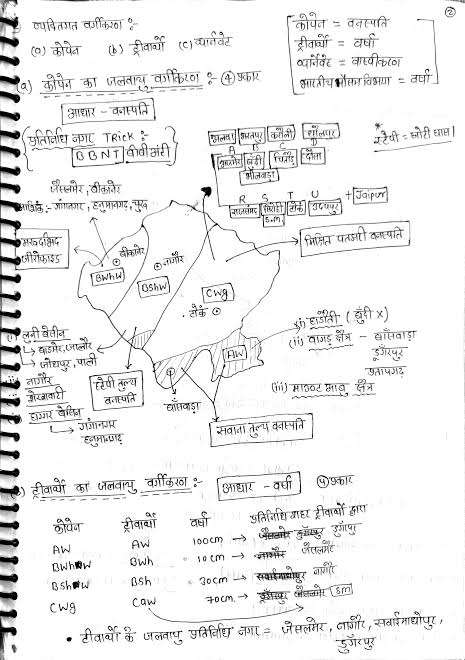 ②
व्यक्तिगत वर्गीकरण :-
(a) कोपेन (b) ट्रीवार्था (c) थार्नवेट
कोपेन = वनस्पति
ट्रीवार्था = वर्षा
थार्नवेट = वाष्पीकरण
भारतीय मौसम विभाग = वर्षा
(a) कोपेन का जलवायु वर्गीकरण :- ④ प्रकार
आधार - वनस्पति
प्रतिनिधि नगर TRick :-
BBNT
अलवर भरतपुर करौली धौलपुर
A B C D
अजमेर बूंदी चित्तौड़ दौसा
भीलवाड़ा
स्टेपी = छोटी घास
R S T U + Jaipur
राजसमंद सिरोही टोंक उदयपुर
S.m.
जैसलमेर, बीकानेर
आंशिक:- गंगानगर, हनुमानगढ़, चुरू
मरूद्भिद
जीरोफाइट्स
मिश्रित पतझड़ वनस्पति
बीकानेर
BWhw
नागौर
BShw
Cwg
टोंक
AW
(i) लुनी बेसीन
↳ बाड़मेर, जालौर
↳ जोधपुर, पाली
नागौर
शेखावाटी
घग्गर बेसिन
↳ गंगानगर
हनुमानगढ़
स्टेपी तुल्य
वनस्पति
बाँसवाड़ा
सवाना तुल्य वनस्पति
(i) हाड़ौती (बूँदी X)
(ii) वागड़ क्षेत्र - बाँसवाड़ा
डूंगरपुर
प्रतापगढ़
(iii) माउण्ट आबू क्षेत्र
(b) ट्रीवार्था का जलवायु वर्गीकरण :- आधार - वर्षा ④ प्रकार
कोपेन ट्रीवार्था वर्षा प्रतिनिधि शहर ट्रीवार्था द्वारा
AW AW 100cm → जैसलमेर डूंगरपुर डूंगरपुर
BWhw BWh 10cm → नागौर जैसलमेर
BShw BSh 30cm → सवाईमाधोपुर नागौर
CWg Caw 70cm → डूंगरपुर जैसलमेर Sm
• ट्रीवार्था के जलवायु प्रतिनिधि नगर = जैसलमेर, नागौर, सवाईमाधोपुर,
डूंगरपुर